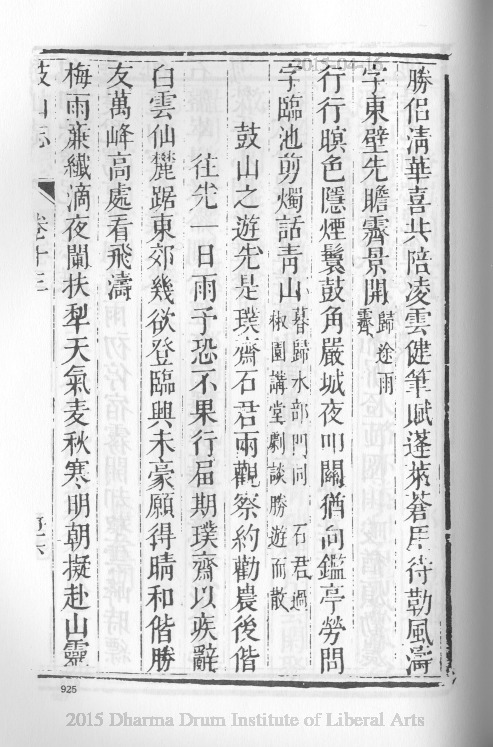 勝侶清華喜共陪凌雲健筆賦蓬萊蒼厓待勒風濤
字東壁先瞻霽景開歸途雨
霽
行行暝色隱煙鬟鼓角嚴城夜叩關猶向鑑亭勞問
字臨池剪燭話靑山暮歸水部門同石君過
椒園講堂劇談勝遊而散
鼓山之遊先是璞齋石君兩觀察約勸農後偕
往先一日雨予恐不果行屆期璞齋以疾辭
白雲仙麓踞東郊幾欲登臨興未豪願得晴和偕勝
友萬峰高處看飛濤
梅雨亷纖滴夜闌扶犁天氣麦秋寒明朝擬赴山靈
鼓山志
卷十三
925
2015 Dharma Drum Institute of Liberal Arts